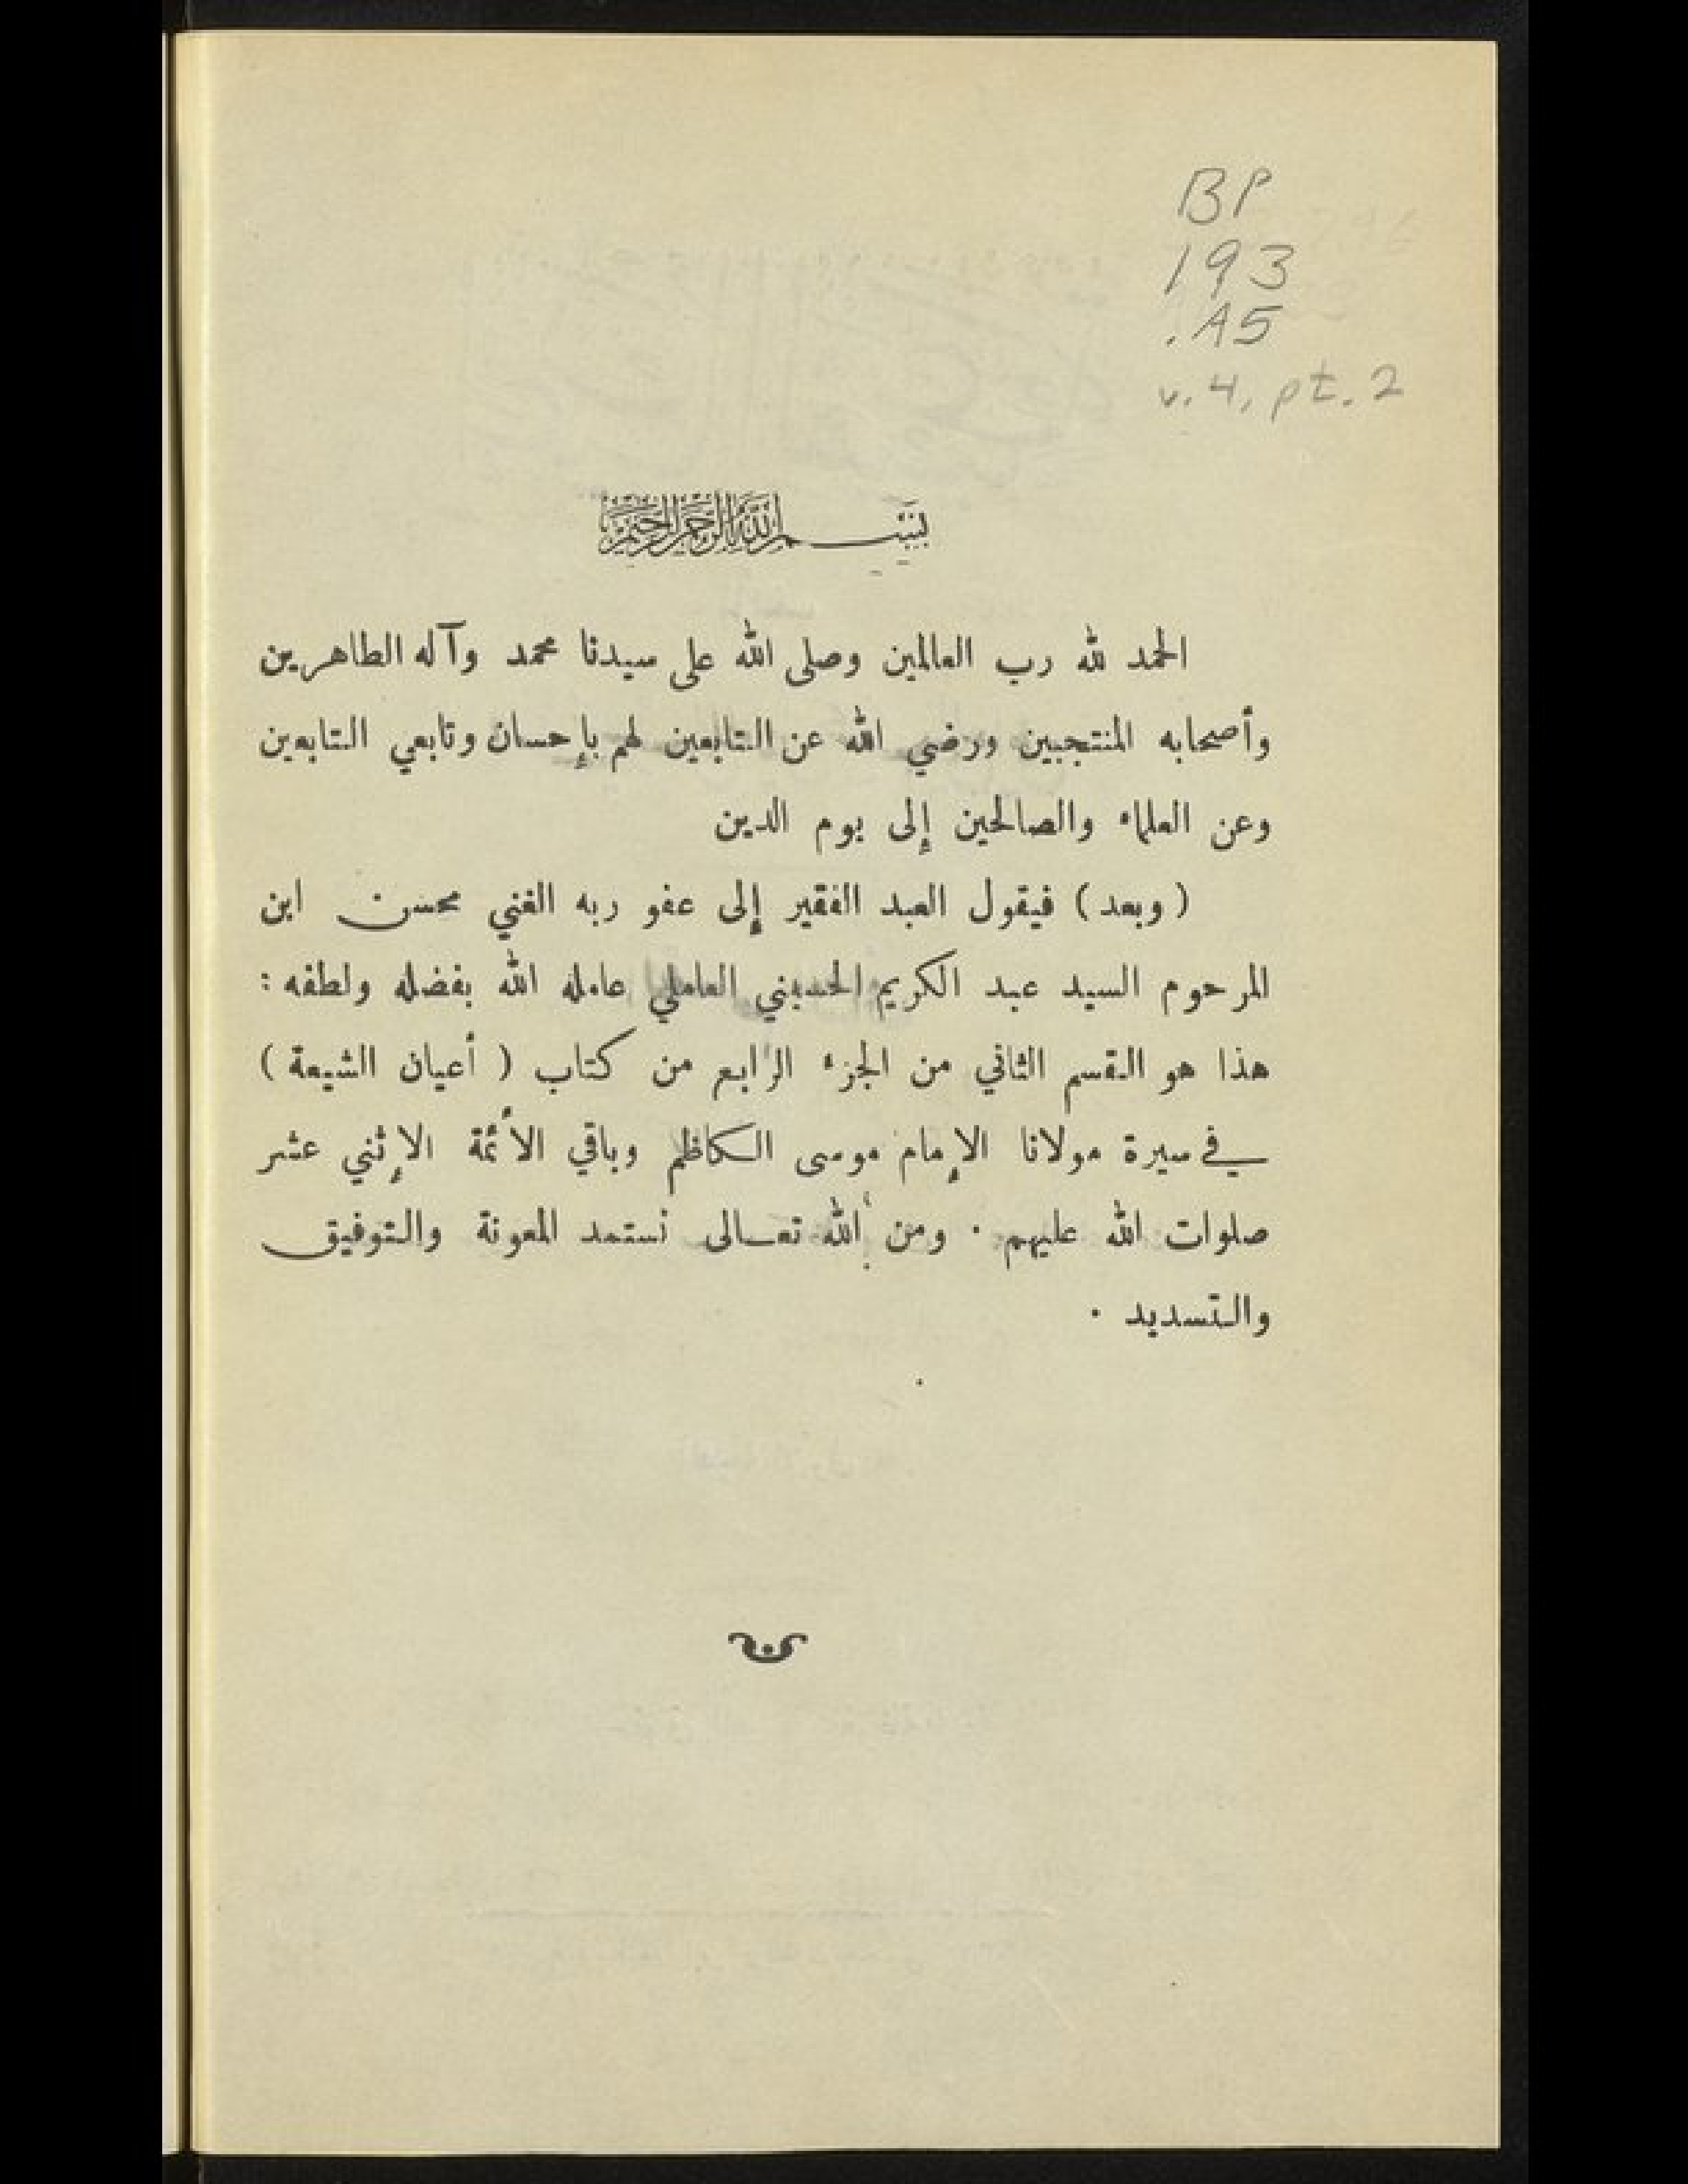 BP
193
.A5
v. 4, pt. 2
بسم الله الرحمن الرحيم
الحمد لله رب العالمين وصلى الله على سيدنا محمد وآله الطاهرين
وأصحابه المنتجبين ورضي الله عن التابعين لهم بإحسان وتابعي التابعين
وعن العلماء والصالحين إلى يوم الدين
( وبعد ) فيقول العبد الفقير إلى عفو ربه الغني محسن ابن
المرحوم السيد عبد الكريم الحسيني العاملي عامله الله بفضله ولطفه :
هذا هو القسم الثاني من الجزء الرابع من كتاب ( أعيان الشيعة )
في سيرة مولانا الإمام موسى الكاظم وباقي الأئمة الإثني عشر
صلوات الله عليهم . ومن الله تعالى نستمد المعونة والتوفيق
والتسديد .